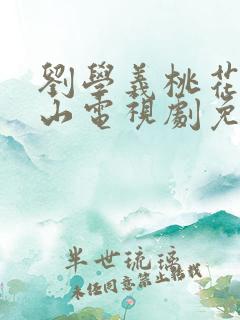 劉學義桃花
山電視劇免
半世琉璃
未经同意禁止转载